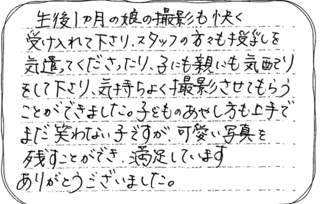 生後1ヵ月の娘の撮影も快く
受け入れて下さり、スタッフの方々も授乳を
気遣ってくださったり、子にも親にも気配り
をして下さり、気持ちよく撮影させてもらう
ことができました。子どものあやし方も上手で
まだ笑わない子ですが、可愛い写真を
残すことができ、満足しています
ありがとうございました。